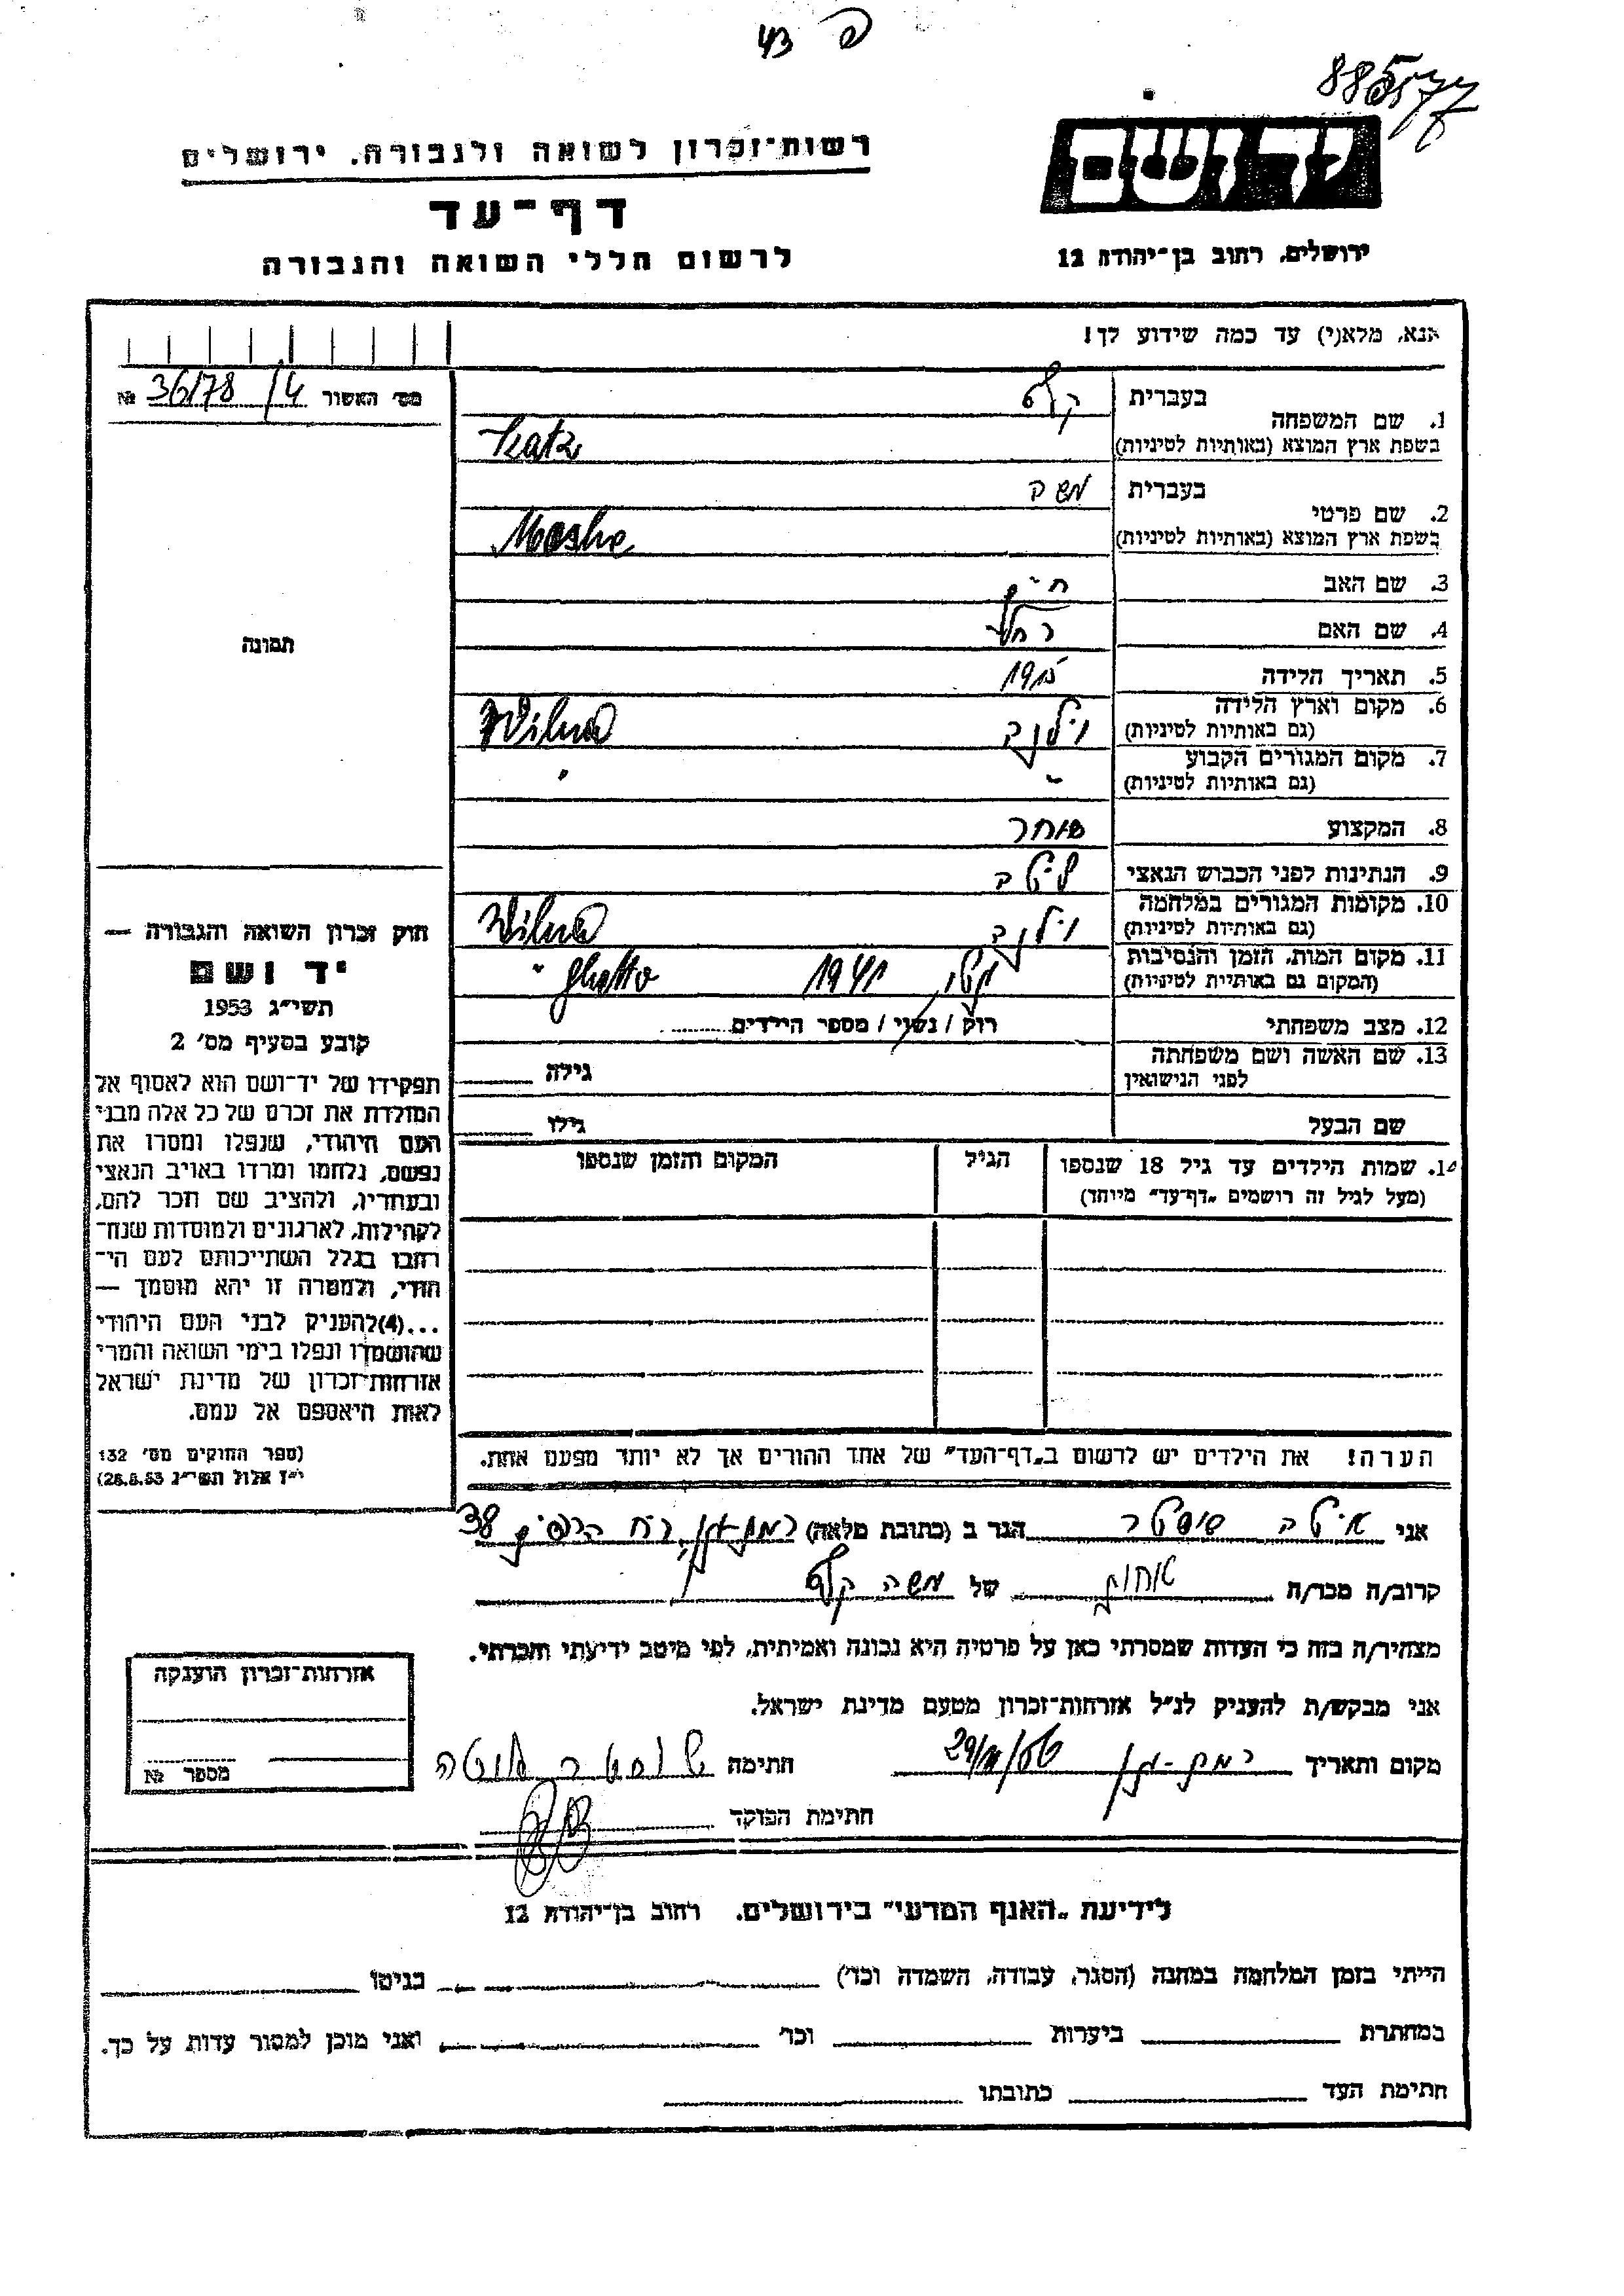 43 פ
88577
יד ושם
ירושלים, רחוב בן־יהודה 12
רשות־זכרון לשואה ולגבורה, ירושלים
דף־עד
לרשום חללי השואה והגבורה
אנא, מלא(י) עד כמה שידוע לך!
מס׳ האשור № 36/78 /4
1. שם המשפחה בעברית כץ
בשפת ארץ המוצא (באותיות לטיניות) Katz
2. שם פרטי בעברית משה
בשפת ארץ המוצא (באותיות לטיניות) Moshe
3. שם האב חיים
4. שם האם רחל
5. תאריך הלידה 1915
6. מקום וארץ הלידה (גם באותיות לטיניות) וילנה Wilna
7. מקום המגורים הקבוע (גם באותיות לטיניות) " "
8. המקצוע סוחר
9. הנתינות לפני הכבוש הנאצי ליטה
10. מקומות המגורים במלחמה (גם באותיות לטיניות) וילנה Wilna
11. מקום המות, הזמן והנסיבות (המקום גם באותיות לטיניות) גטו 1941 ghetto "
12. מצב משפחתי רוק / נשוי / מספר הילדים
13. שם האשה ושם משפחתה לפני הנישואין גילה
שם הבעל גילו
14. שמות הילדים עד גיל 18 שנספו הגיל המקום והזמן שנספו
(מעל לגיל זה רושמים „דף־עד” מיוחד)
הערה! את הילדים יש לרשום ב„דף־העד” של אחד ההורים אך לא יותר מפעם אחת.
תמונה
חוק זכרון השואה והגבורה —
יד ושם
תשי״ג 1953
קובע בסעיף מס׳ 2
תפקידו של יד־ושם הוא לאסוף אל
המולדת את זכרם של כל אלה מבני
העם היהודי, שנפלו ומסרו את
נפשם, נלחמו ומרדו באויב הנאצי
ובעוזריו, ולהציב שם וזכר להם,
לקהילות, לארגונים ולמוסדות שנח־
רבו בגלל השתייכותם לעם הי־
הודי, ולמטרה זו יהא מוסמך —
...(4) להעניק לבני העם היהודי
שהושמדו ונפלו בימי השואה והמרי
אזרחות־זכרון של מדינת ישראל
לאות היאספם אל עמם.
(ספר החוקים מס׳ 132
י״ז אלול תשי״ג 28.8.53)
אני איטה שוסטר הגר ב (כתובת מלאה) רמת גן, רח 38
קרוב/ה מכר/ה אחות של משה כץ
מצהיר/ה בזה כי העדות שמסרתי כאן על פרטיה היא נכונה ואמיתית, לפי מיטב ידיעתי והכרתי.
אני מבקש/ת להעניק לנ״ל אזרחות־זכרון מטעם מדינת ישראל.
מקום ותאריך רמת-גן חתימה
חתימת הפוקד
אזרחות־זכרון הוענקה
מספר №
לידיעת „האגף המדעי” בירושלים, רחוב בן־יהודה 12
הייתי בזמן המלחמה במחנה (הסגר, עבודה, השמדה וכד׳) בגיטו
במחתרת ביערות וכד׳ ואני מוכן למסור עדות על כך.
חתימת העד כתובתו